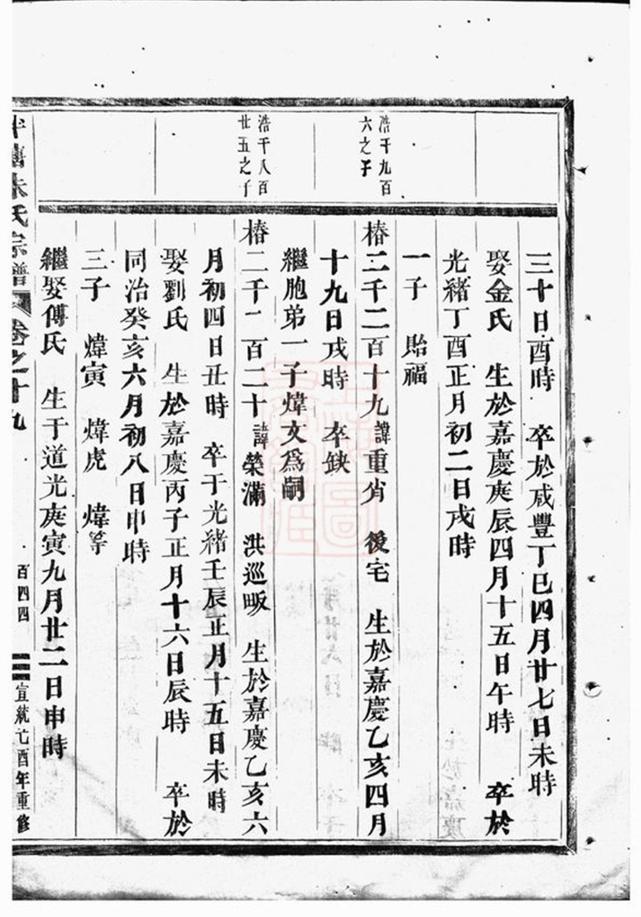 三十日酉時　卒於咸豐丁巳四月廿七日未時
娶金氏　生於嘉慶庚辰四月十五日午時　卒於
光緒丁酉正月初二日戌時
一子　貽福
浩千九百
六之子
椿二千二百十九諱重省　後宅　生於嘉慶乙亥四月
十九日戌時　卒缺
繼胞弟一子煒文爲嗣
浩千八百
廿五之子
椿二千二百二十諱榮滿　洪巡畈　生於嘉慶乙亥六
月初四日丑時　卒于光緒壬辰正月十五日未時
娶劉氏　生於嘉慶丙子正月十六日辰時　卒於
同治癸亥六月初八日申時
三子　煒寅　煒虎　煒等
繼娶傅氏　生于道光庚寅九月廿二日申時
朱氏宗譜　卷之十九　百四四　宣統己酉年重修